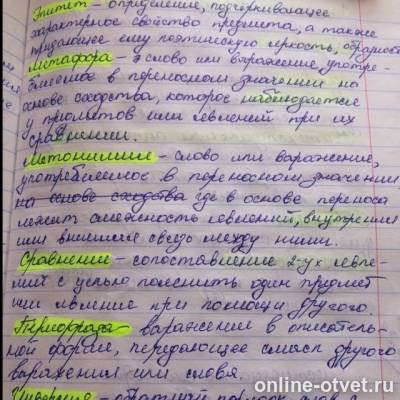 Эпитет - определение, подчёркивающее
характерное свойство предмета, а также
придающее ему поэтическую яркость, образность
Метафора - это слово или выражение, употре-
блённое в переносном значении на
основе сходства, которое наблюдается
у предметов или явлений при их
сравнении.
Метонимия - слово или выражение,
употребляемое в переносном значении
на основе сходства где в основе переноса
лежит смежность явлений, внутренняя
или внешняя связь между ними.
Сравнение - сопоставление 2-ух явле-
ний с целью пояснить один предмет
или явление при помощи другого.
Перифраза - варажение в описатель-
ной форме, передающее смысл другого
варажения или слова.
Инверсия - обратный порядок слов с
online-otvet.ru